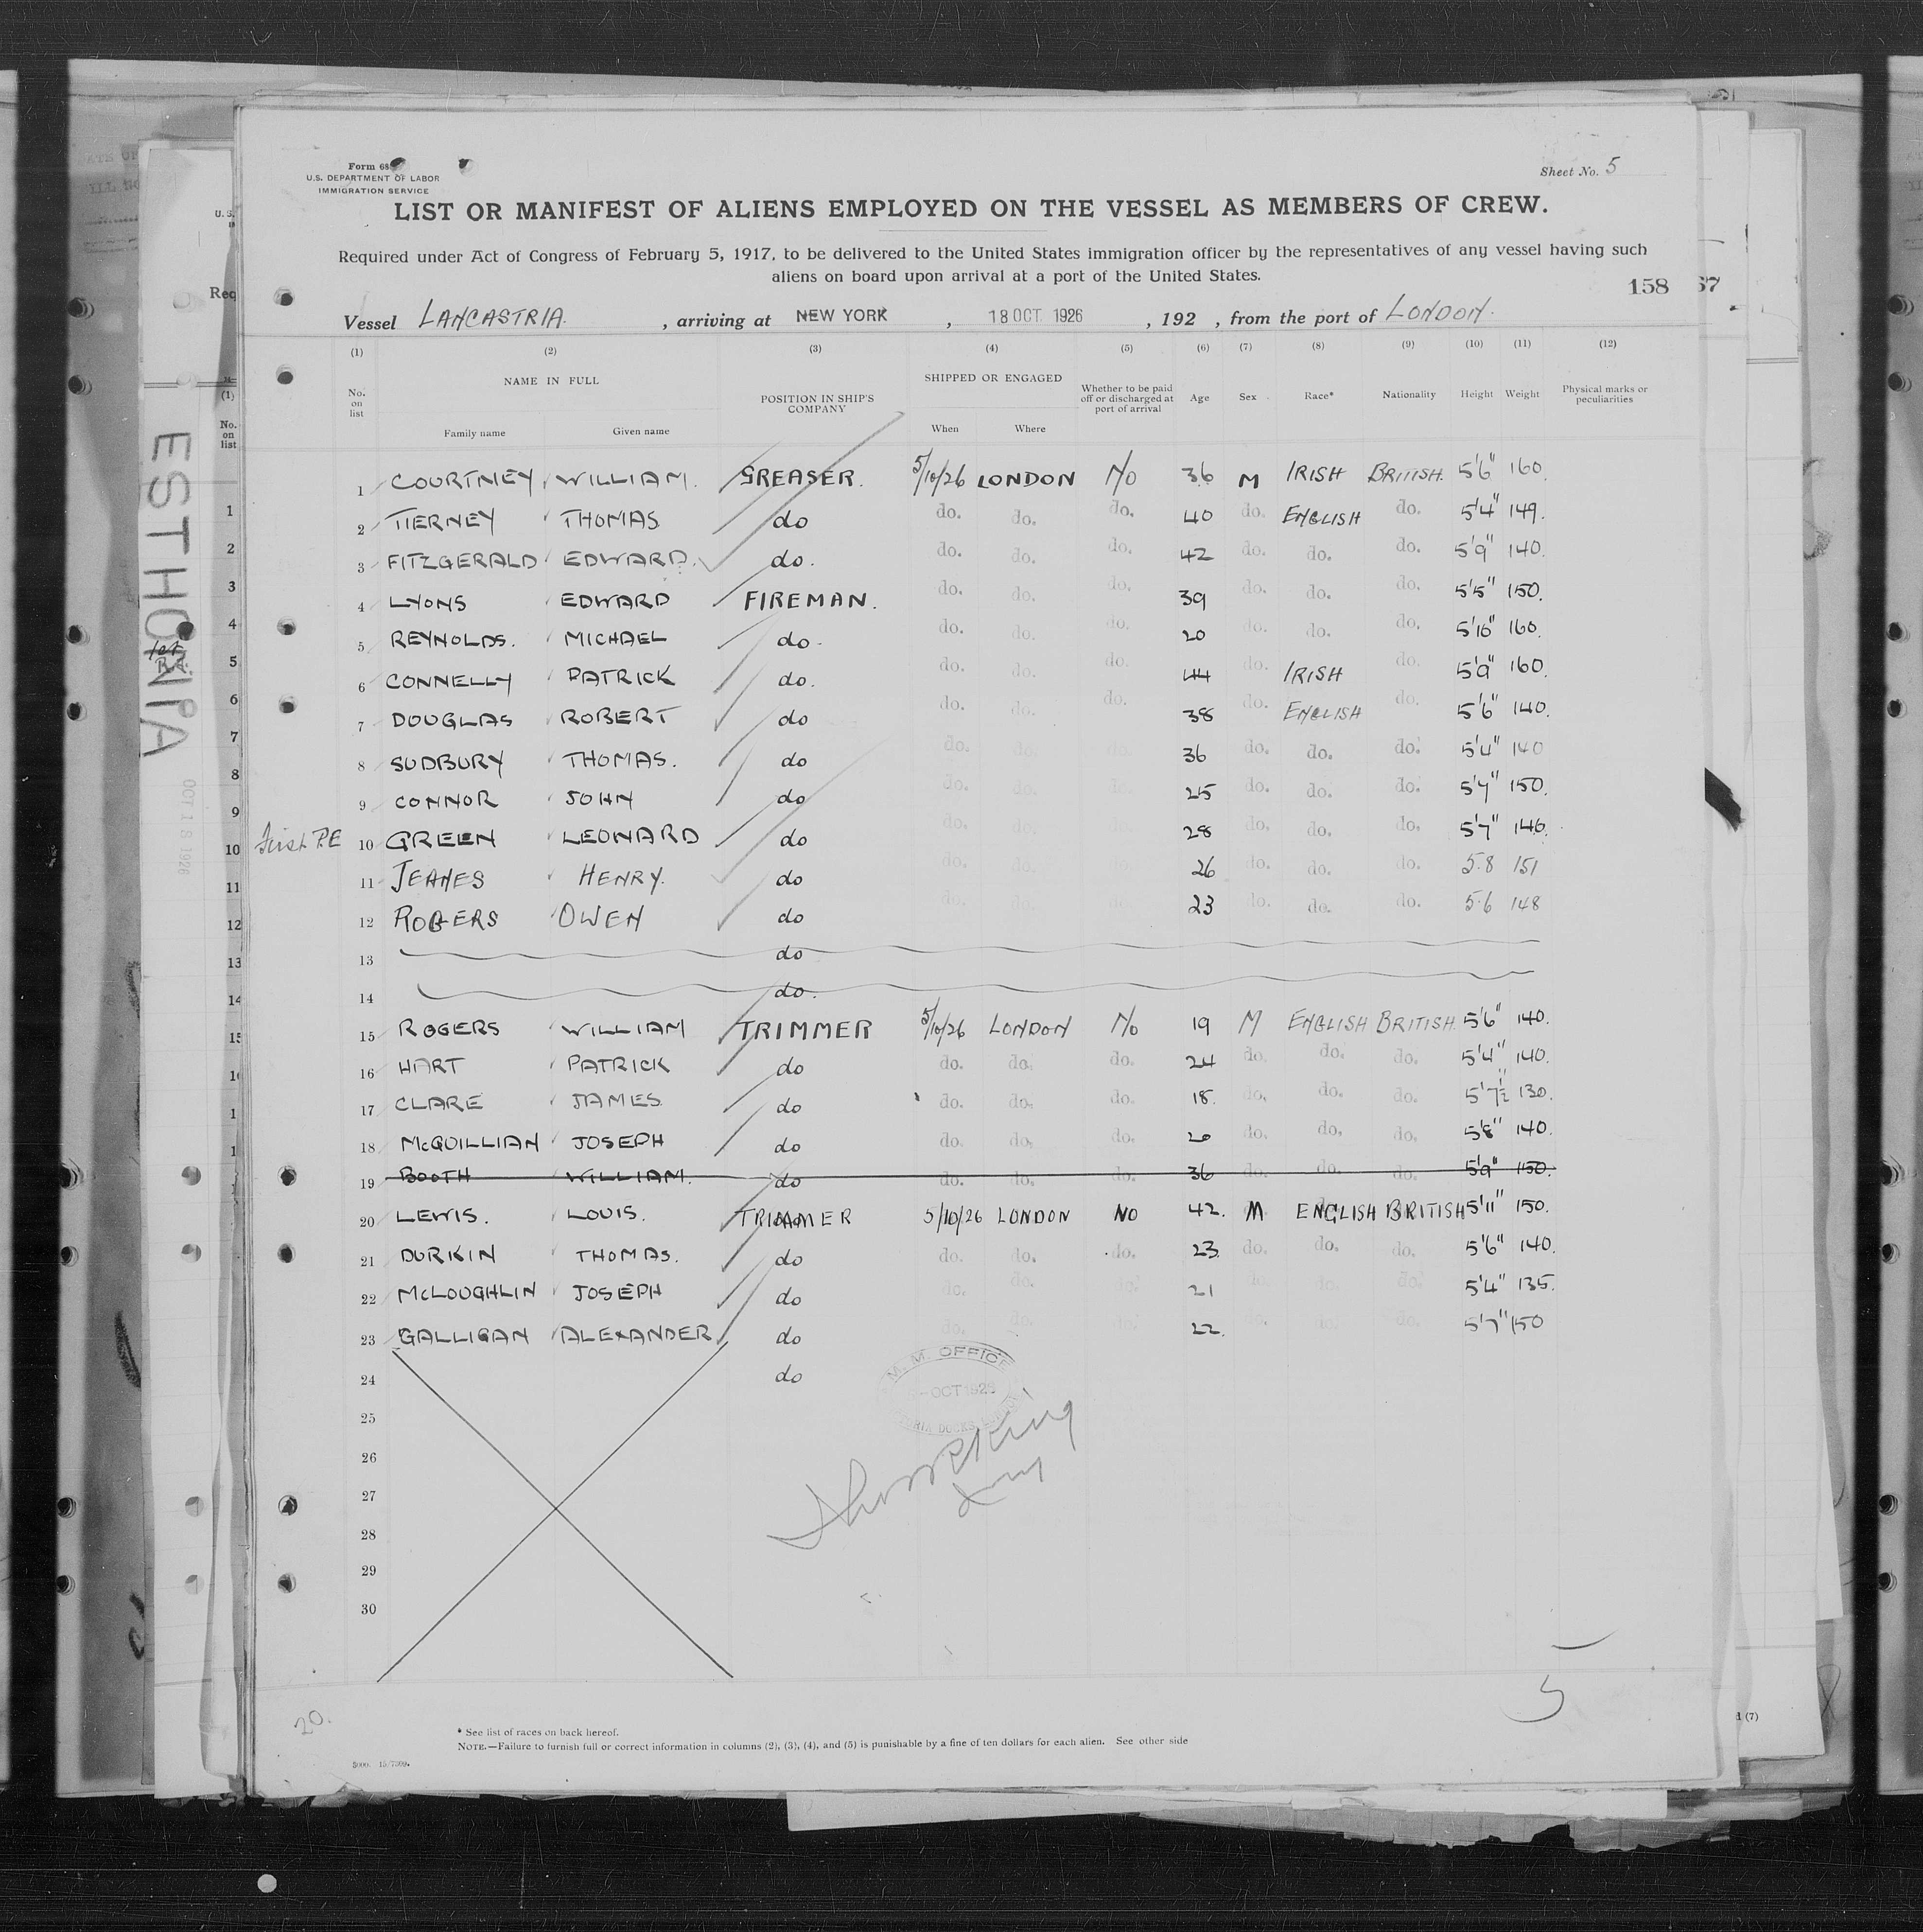 Form 68
U.S. DEPARTMENT OF LABOR
IMMIGRATION SERVICE
Sheet No. 5
LIST OR MANIFEST OF ALIENS EMPLOYED ON THE VESSEL AS MEMBERS OF CREW.
Required under Act of Congress of February 5, 1917, to be delivered to the United States immigration officer by the representatives of any vessel having such
aliens on board upon arrival at a port of the United States.
158 67
Vessel LANCASTRIA. , arriving at NEW YORK , 18 OCT 1926 , 192 , from the port of LONDON.
(1) (2) (3) (4) (5) (6) (7) (8) (9) (10) (11) (12)
No. on list NAME IN FULL Family name Given name POSITION IN SHIP'S COMPANY SHIPPED OR ENGAGED When Where Whether to be paid off or discharged at port of arrival Age Sex Race* Nationality Height Weight Physical marks or peculiarities
1 COURTNEY WILLIAM. GREASER. 5/10/26 LONDON No 36 M IRISH BRITISH. 5'6" 160.
2 TIERNEY THOMAS do do. do. do. 40 do. ENGLISH do. 5'4" 149.
3 FITZGERALD EDWARD. do. do. do. do. 42 do. do. do. 5'9" 140.
4 LYONS EDWARD FIREMAN. do. do. do. 39 do. do. do. 5'5" 150.
5 REYNOLDS. MICHAEL do. do. do. do. 20 do. do. do. 5'10" 160.
6 CONNELLY PATRICK do. do. do. do. 44 do. IRISH do. 5'9" 160.
7 DOUGLAS ROBERT do do. do. do. 38 do. ENGLISH do. 5'6" 140.
8 SUDBURY THOMAS. do do. do. do. 36 do. do. do. 5'4" 140
9 CONNOR JOHN do do. do. do. 25 do. do. do. 5'7" 150.
First P.E 10 GREEN LEONARD do do. do. do. 28 do. do. do. 5'7" 146.
11 JEANES HENRY. do do. do. do. 26 do. do. do. 5.8 151
12 ROGERS OWEN do do. do. do. 23 do. do. do. 5.6 148
13 do
14 do.
15 ROGERS WILLIAM TRIMMER 5/10/26 LONDON No 19 M ENGLISH BRITISH. 5'6" 140.
16 HART PATRICK do do. do. do. 24 do. do. do. 5'4" 140.
17 CLARE JAMES do do. do. do. 18. do. do. do. 5'7½" 130.
18 McQUILLIAN JOSEPH do do. do. do. 20 do. do. do. 5'8" 140.
19 BOOTH WILLIAM. do do. do. do. 36 do. do. do. 5'9" 150.
20 LEWIS. LOUIS. TRIMMER 5/10/26 LONDON NO 42. M ENGLISH BRITISH 5'11" 150.
21 DURKIN THOMAS. do do. do. do. 23. do. do. do. 5'6" 140.
22 McLOUGHLIN JOSEPH do do. do. do. 21 do. do. do. 5'4" 135.
23 GALLIGAN ALEXANDER do do. do. do. 22. do. do. do. 5'7" 150
24 do
25
26
27
28
29
30
M. M. OFFICE
OCT 1926
DOCKS
20.
5
* See list of races on back hereof.
NOTE.—Failure to furnish full or correct information in columns (2), (3), (4), and (5) is punishable by a fine of ten dollars for each alien. See other side
ESTHONIA
OCT 18 1926
U. S.
Req
(1)
No. on list
1
2
3
4
5
6
7
8
9
10
11
12
13
14
15
(7)